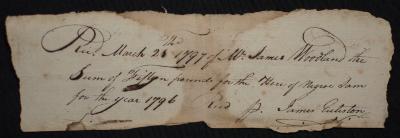 Recd. March 28th 1797 of Mr. James Woodland the
Sum of Fifteen pounds for the Hire of Negroe Sam
for the Year 1796
James